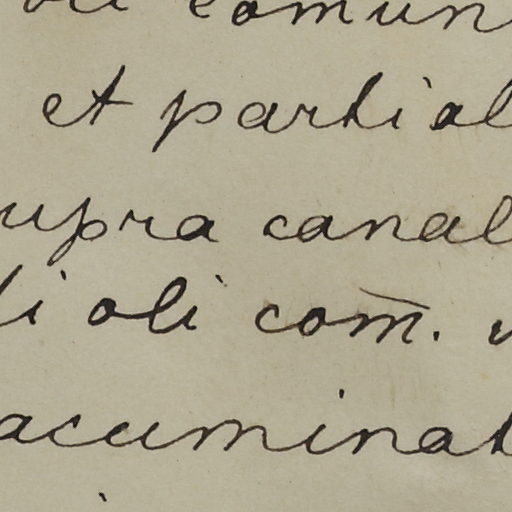 oli comun
et partial
upra canal
li oli com̄.
acuminat